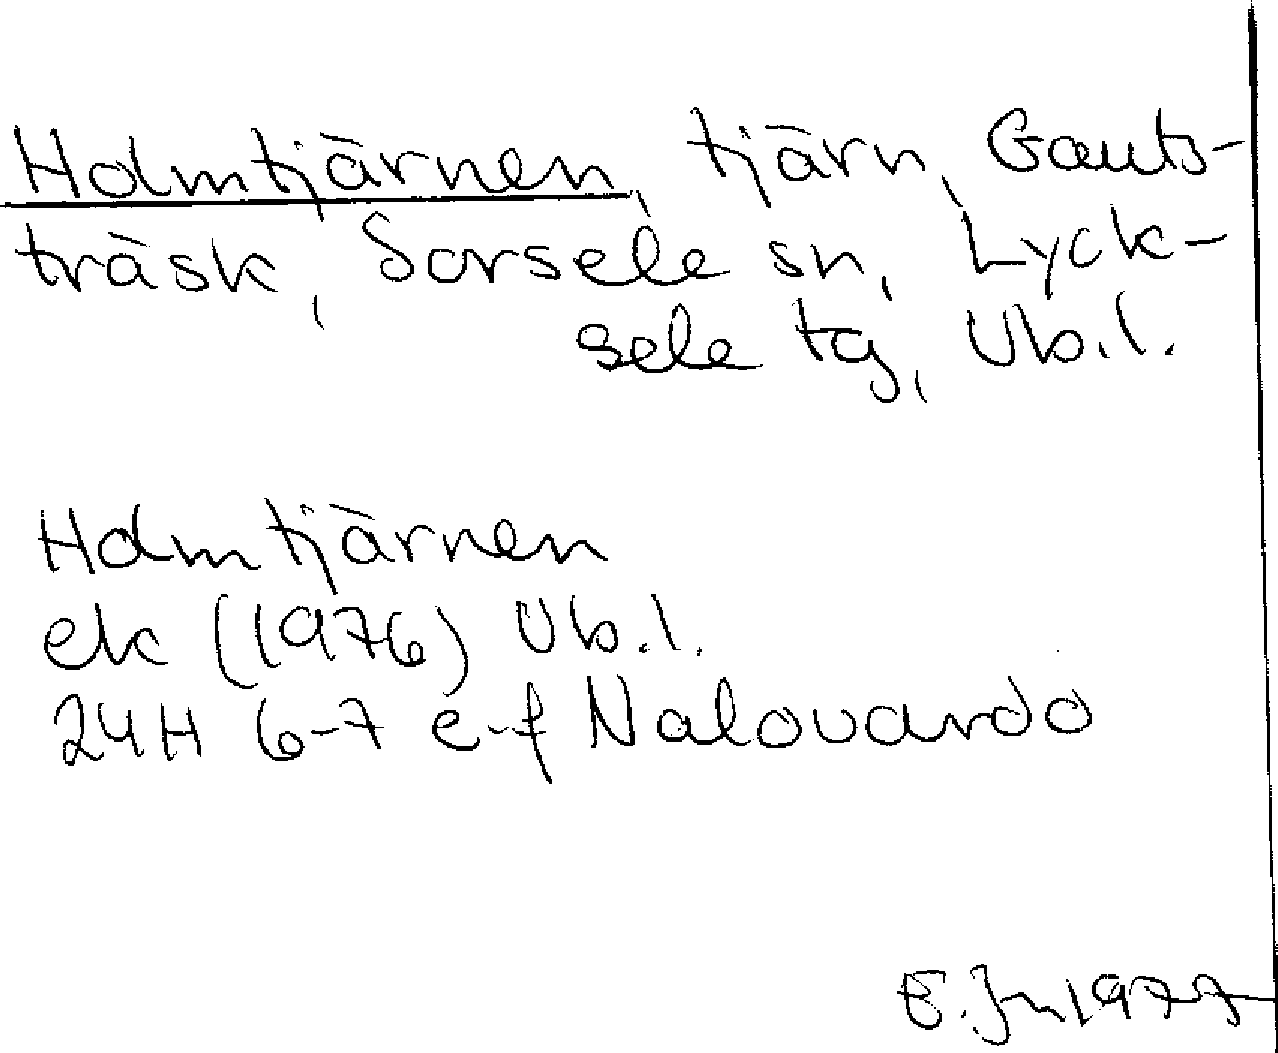 Holmtjärnen, tjärn, Gauts-
träsk, Sorsele sn, Lyck-
sele tg, Vb.l.
Holmtjärnen
ek (1976) Vb.l.
24H 6-7 e-f Nalovardo
E. Jn 1977